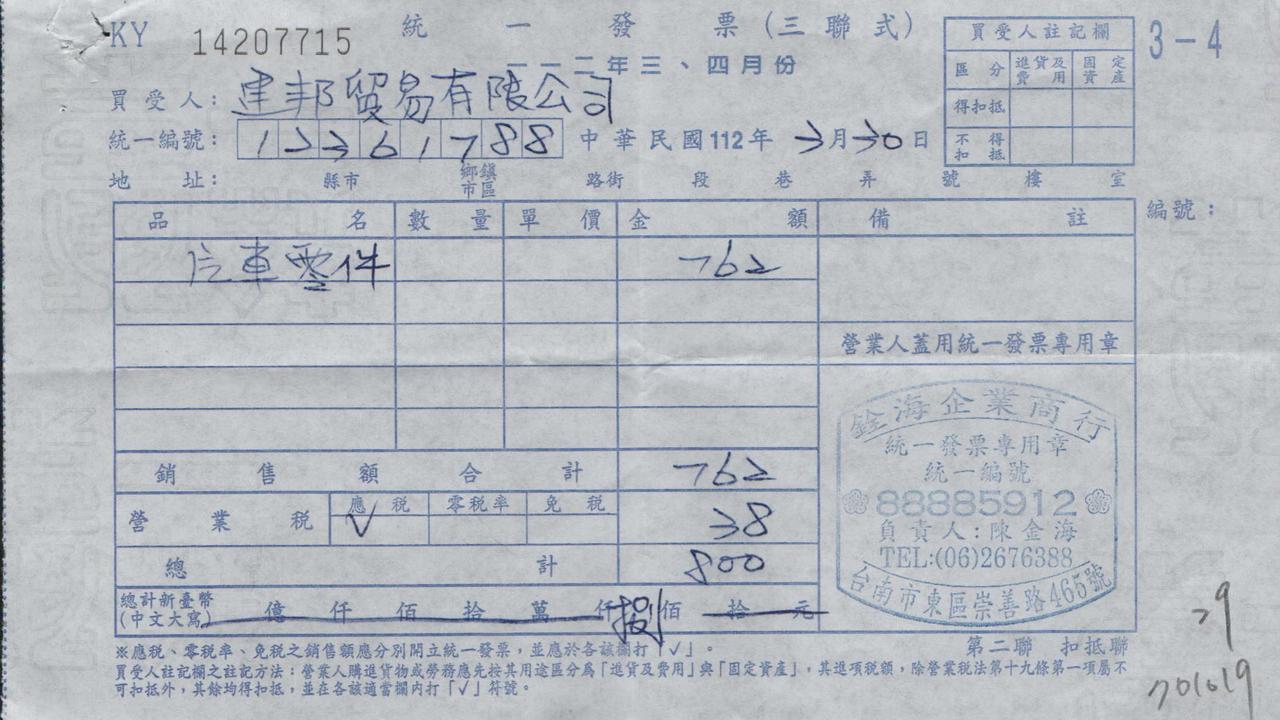 KY 14207715
統一發票(三聯式)
一一二年三、四月份
3-4
買受人註記欄
區分 進貨及費用 固定資產
得扣抵
不得扣抵
買受人: 建邦貿易有限公司
統一編號: 12361788 中華民國112年 3月30日
地址: 縣市 鄉鎮市區 路街 段 巷 弄 號 樓 室
品名 數量 單價 金額 備註 編號:
汽車零件 762
營業人蓋用統一發票專用章
銷售額合計 762
營業稅 應稅 零稅率 免稅
V 38
總計 800
總計新臺幣(中文大寫) 億 仟 佰 拾 萬 仟 捌佰 拾 元
銓海企業商行
統一發票專用章
統一編號
88885912
負責人:陳金海
TEL:(06)2676388
台南市東區崇善路465號
※應稅、零稅率、免稅之銷售額應分別開立統一發票,並應於各該欄打「√」。
第二聯 扣抵聯
買受人註記欄之註記方法:營業人購進貨物或勞務應先按其用途區分為「進貨及費用」與「固定資產」,其進項稅額,除營業稅法第十九條第一項屬不
可扣抵外,其餘均得扣抵,並在各該適當欄內打「√」符號。
29
701019